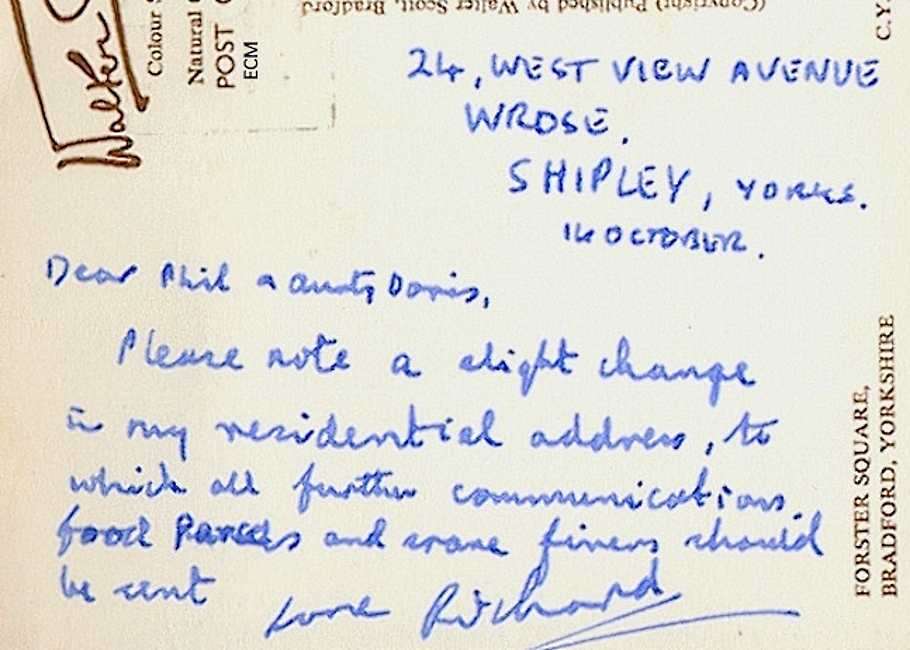 (Copyright) Published by Walter Scott, Bradford.
Walter
Colour
Natural
POST
ECM
C.Y.
24, WEST VIEW AVENUE
WROSE.
SHIPLEY, YORKS.
14 OCTOBER.
Dear Phil & Aunty Doris,
Please note a slight change
in my residential address, to
which all further communications,
food Parcels and spare fivers should
be sent
Love Richard
FORSTER SQUARE,
BRADFORD, YORKSHIRE